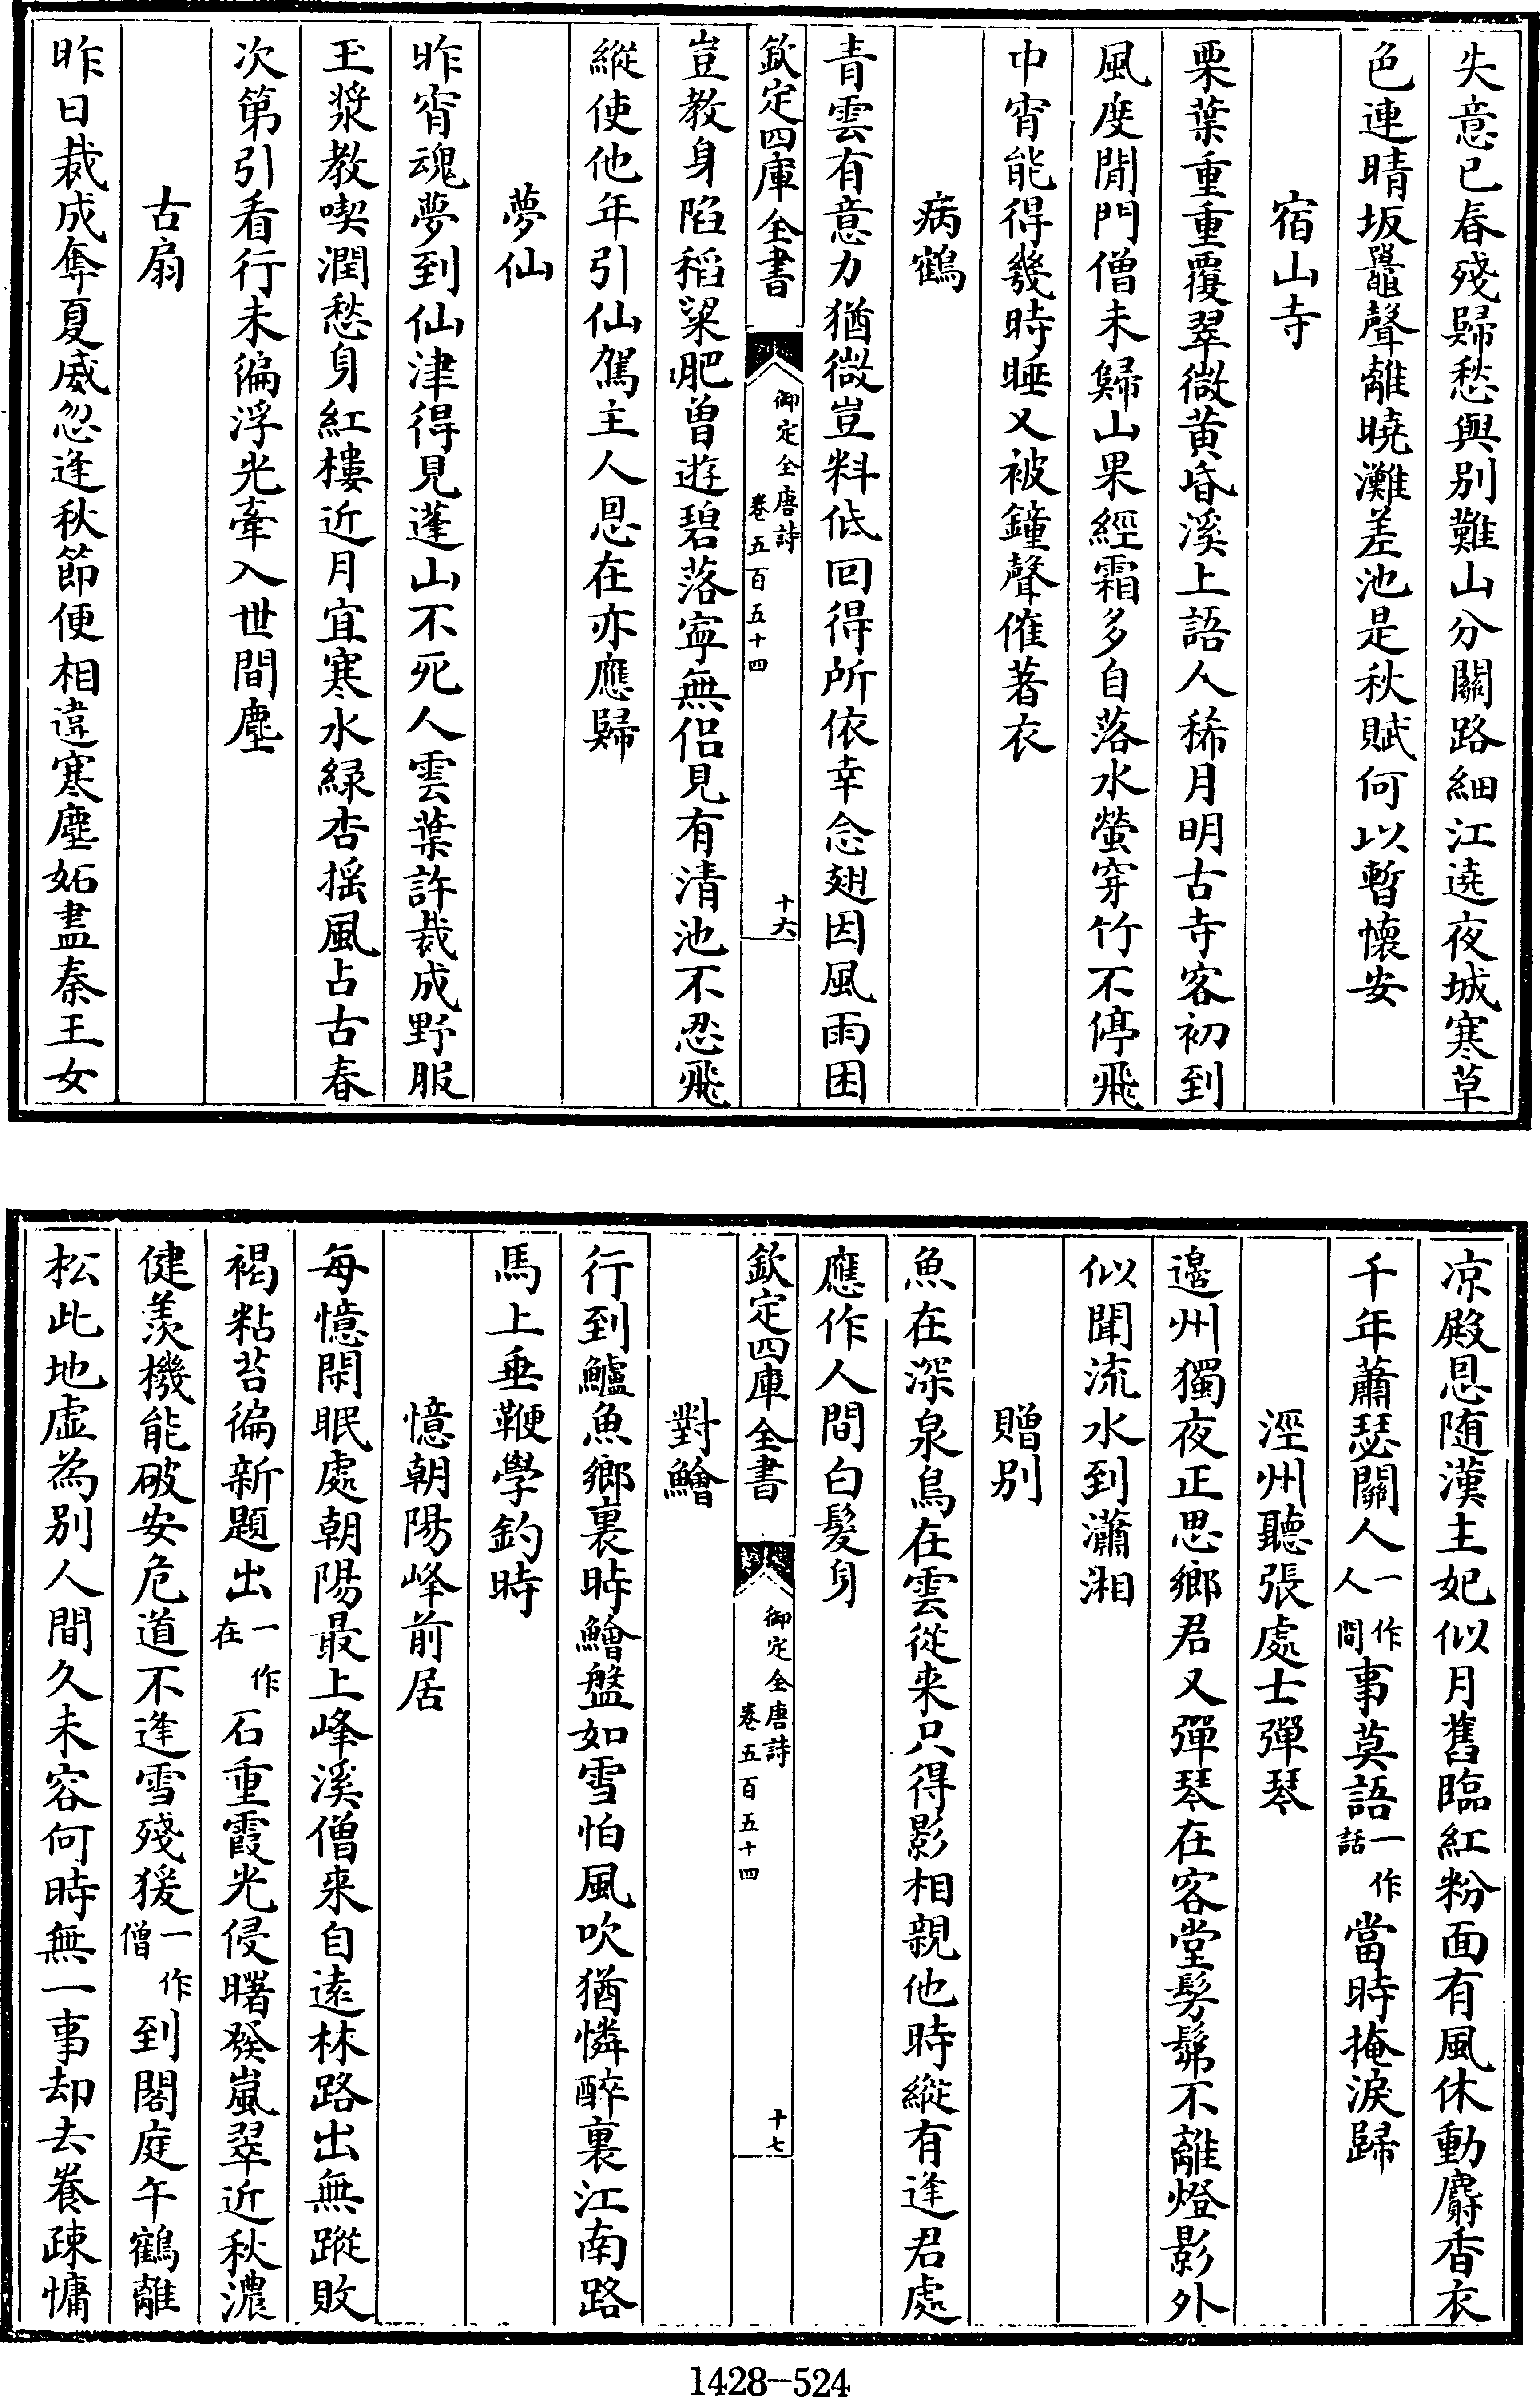 失意已春殘歸愁與別難山分關路細江遶夜城寒草
色連晴坂鼉聲離曉灘差池是秋賦何以暫懷安
宿山寺
栗葉重重覆翠微黄昏溪上語人稀月明古寺客初到
風度閒門僧未歸山果經霜多自落水螢穿竹不停飛
中宵能得幾時睡又被鐘聲催著衣
病鶴
青雲有意力猶微豈料低回得所依幸念翅因風雨困
欽定四庫全書
御定全唐詩
卷五百五十四
十六
豈教身陷稻粱肥曾遊碧落寧無侣見有清池不忍飛
縱使他年引仙駕主人恩在亦應歸
夢仙
昨宵魂夢到仙津得見蓬山不死人雲葉許裁成野服
玉漿教喫潤愁身紅樓近月宜寒水緑杏揺風占古春
次第引看行未徧浮光牽入世間塵
古扇
昨日裁成奪夏威忽逢秋節便相違寒塵妬盡秦王女
凉殿恩随漢主妃似月舊臨紅粉面有風休動麝香衣
千年蕭瑟關人一作人間事莫語一作話當時掩淚歸
涇州聽張處士彈琴
邉州獨夜正思鄉君又彈琴在客堂髣髴不離燈影外
似聞流水到瀟湘
贈別
魚在深泉鳥在雲從来只得影相親他時縱有逢君處
應作人間白髮身
欽定四庫全書
御定全唐詩
卷五百五十四
十七
對鱠
行到鱸魚鄉裏時鱠盤如雪怕風吹猶憐醉裏江南路
馬上垂鞭學釣時
憶朝陽峰前居
每憶閑眠處朝陽最上峰溪僧来自遠林路出無蹤敗
褐粘苔徧新題出一作在石重霞光侵曙發嵐翠近秋濃
健羡機能破安危道不逢雪殘猨一作僧到閣庭午鶴離
松此地虚為別人間久未容何時無一事却去養疎慵
1428—524